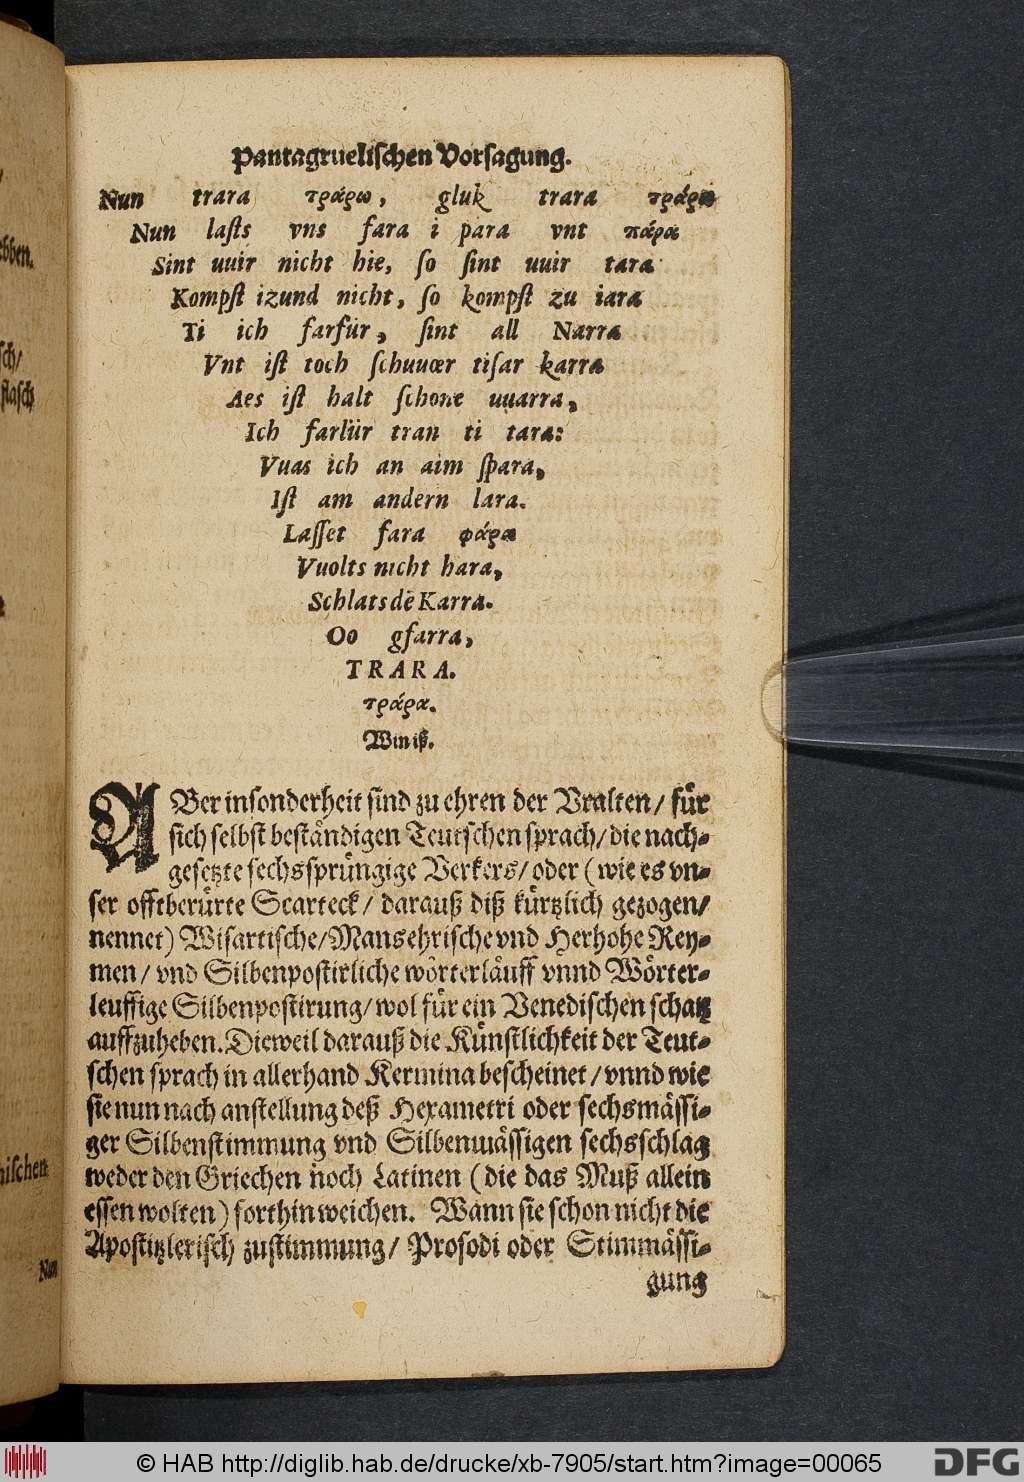 Pantagruelischen Vorsagung.
Nun trara τράρω, gluk trara τράρω
Nun lasts vns fara i para vnt πάρα
Sint uuir nicht hie, so sint uuir tara
Kompst izund nicht, so kompst zu iara
Ti ich farfür, sint all Narra
Vnt ist toch schuuœr tisar karra
Aes ist halt schone uuarra,
Ich farlür tran ti tara:
Vuas ich an aim spara,
Ist am andern lara.
Lasset fara φάρα
Vuolts nicht hara,
Schlats de Karra.
Oo gfarra,
TRARA.
τράρα.
Win iß.
ABer insonderheit sind zu ehren der Vralten/ für
sich selbst beståndigen Teutschen sprach/ die nach-
gesetzte sechssprüngige Verkers/ oder (wie es vn-
ser offtberürte Scarteck/ darauß diß kürtzlich gezogen/
nennet) Wisartische/Mansehrische vnd Herhohe Rey-
men/ vnd Silbenpostirliche wörterläuff vnnd Wörter-
leuffige Silbenpostirung/ wol für ein Venedischen schatz
auffzuheben. Dieweil darauß die Künstlichkeit der Teut-
schen sprach in allerhand Kermina bescheinet/ vnnd wie
sie nun nach anstellung deß Hexametri oder sechsmässi-
ger Silbenstimmung vnd Silbenmässigen sechsschlag
weder den Griechen noch Latinen (die das Muß allein
essen wolten) forthin weichen. Wann sie schon nicht die
Apostitzlerisch zustimmung/ Prosodi oder Stimmässi-
gung
© HAB http://diglib.hab.de/drucke/xb-7905/start.htm?image=00065
DFG